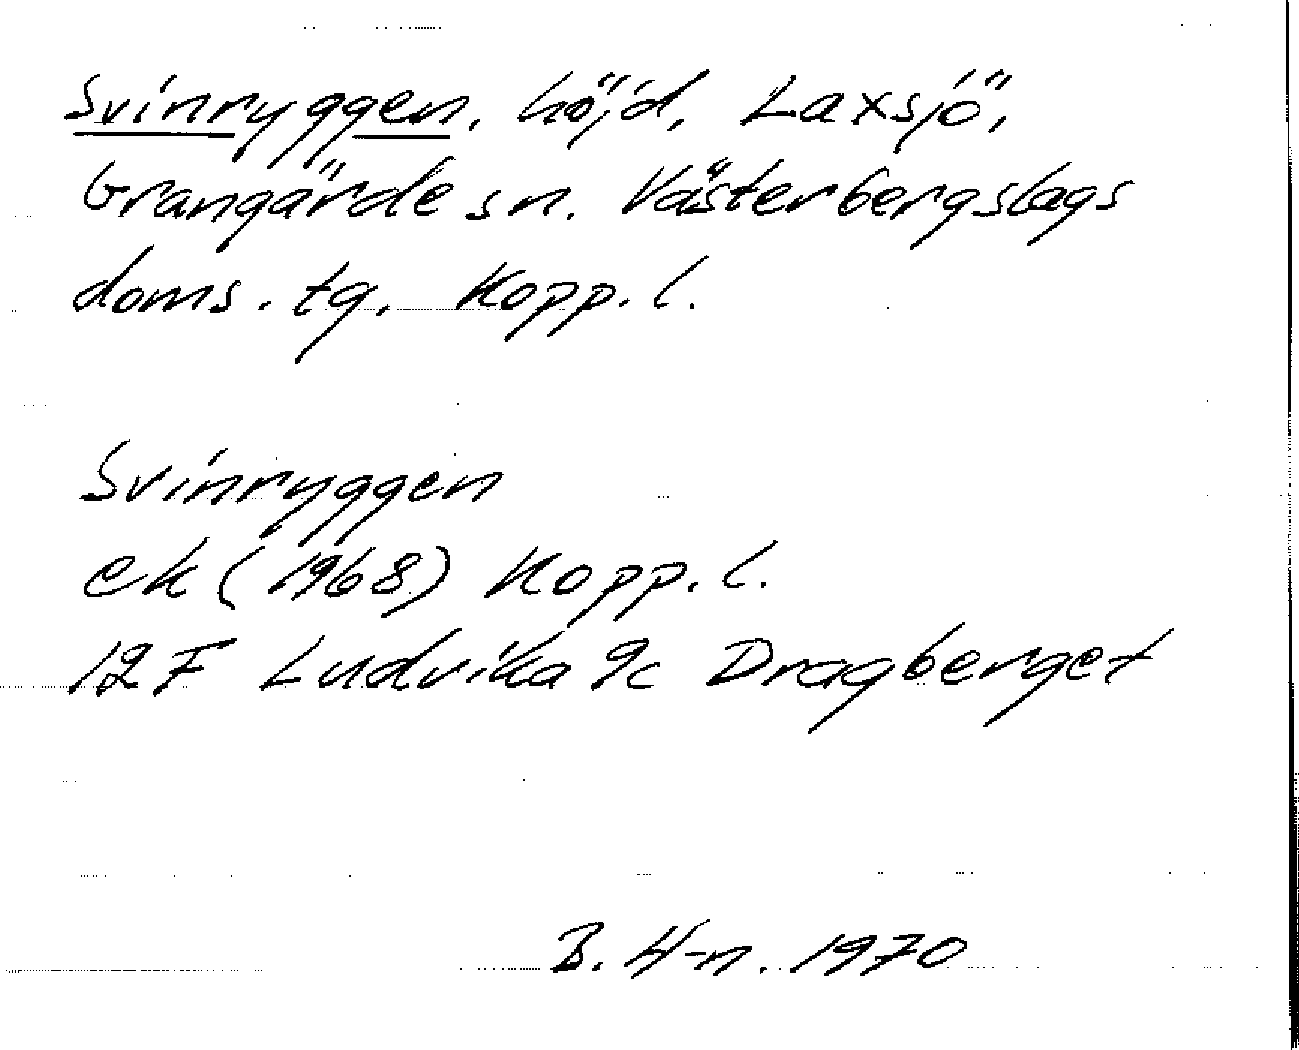 Svinryggen, höjd, Laxsjö,
Grangärde sn. Västerbergslags
doms. tg. Kopp. l.
Svinryggen
ek (1968) Kopp. l.
12F Ludvika 9c Dragberget
B. H-n. 1970